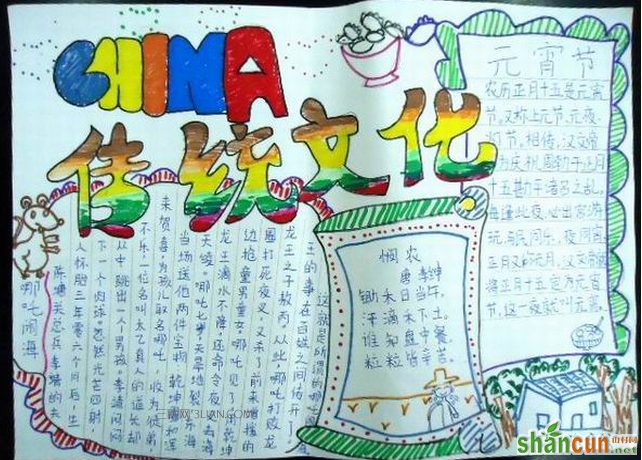 CHINA
传统文化
元宵节
农历正月十五是元宵
节，又称上元节，元夜，
灯节，相传，汉文帝
为庆祝周勃于正月
十五勘平诸吕之乱，
每逢此夜，必出宫游
玩，与民同乐，夜同宵
正月又称元月，汉文帝就
将正月十五定为元宵
节，这一夜就叫元宵。
悯农
唐 李绅
锄禾日当午，
汗滴禾下土。
谁知盘中餐，
粒粒皆辛苦。
哪吒闹海
陈塘关总兵李靖的夫
人怀胎三年零六个月后，生
下一个肉球。忽然光芒四射
从中跳出一个男孩。李靖闷闷
不乐一位名叫太乙真人的道长却
来贺喜，为孩儿取名哪吒，收为徒弟
当场送他两件宝物：乾坤圈和混
天绫。哪吒七岁
龙王滴水不降，还命令夜叉去海
边抢童男童女。哪吒见了用乾坤
圈打死夜叉，又杀了前来增援的
龙王之子敖丙，从此，哪吒打败龙
王的事在百姓之间传开了。
这就是所谓的哪吒闹海
三联网 3LIAN.COM
shancun
山村网
.net